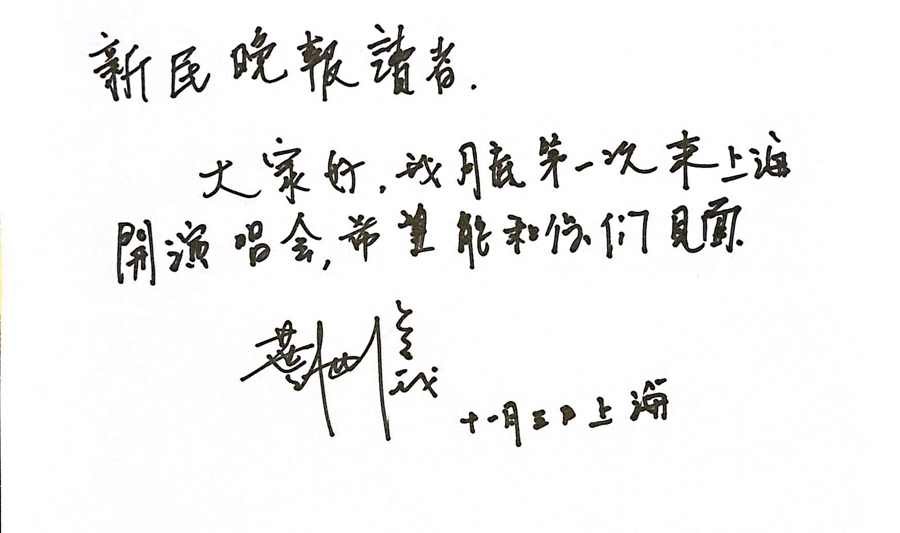 新民晚報讀者.
大家好,我月底第一次来上海
開演唱会,希望能和你们見面.
十一月三日上海